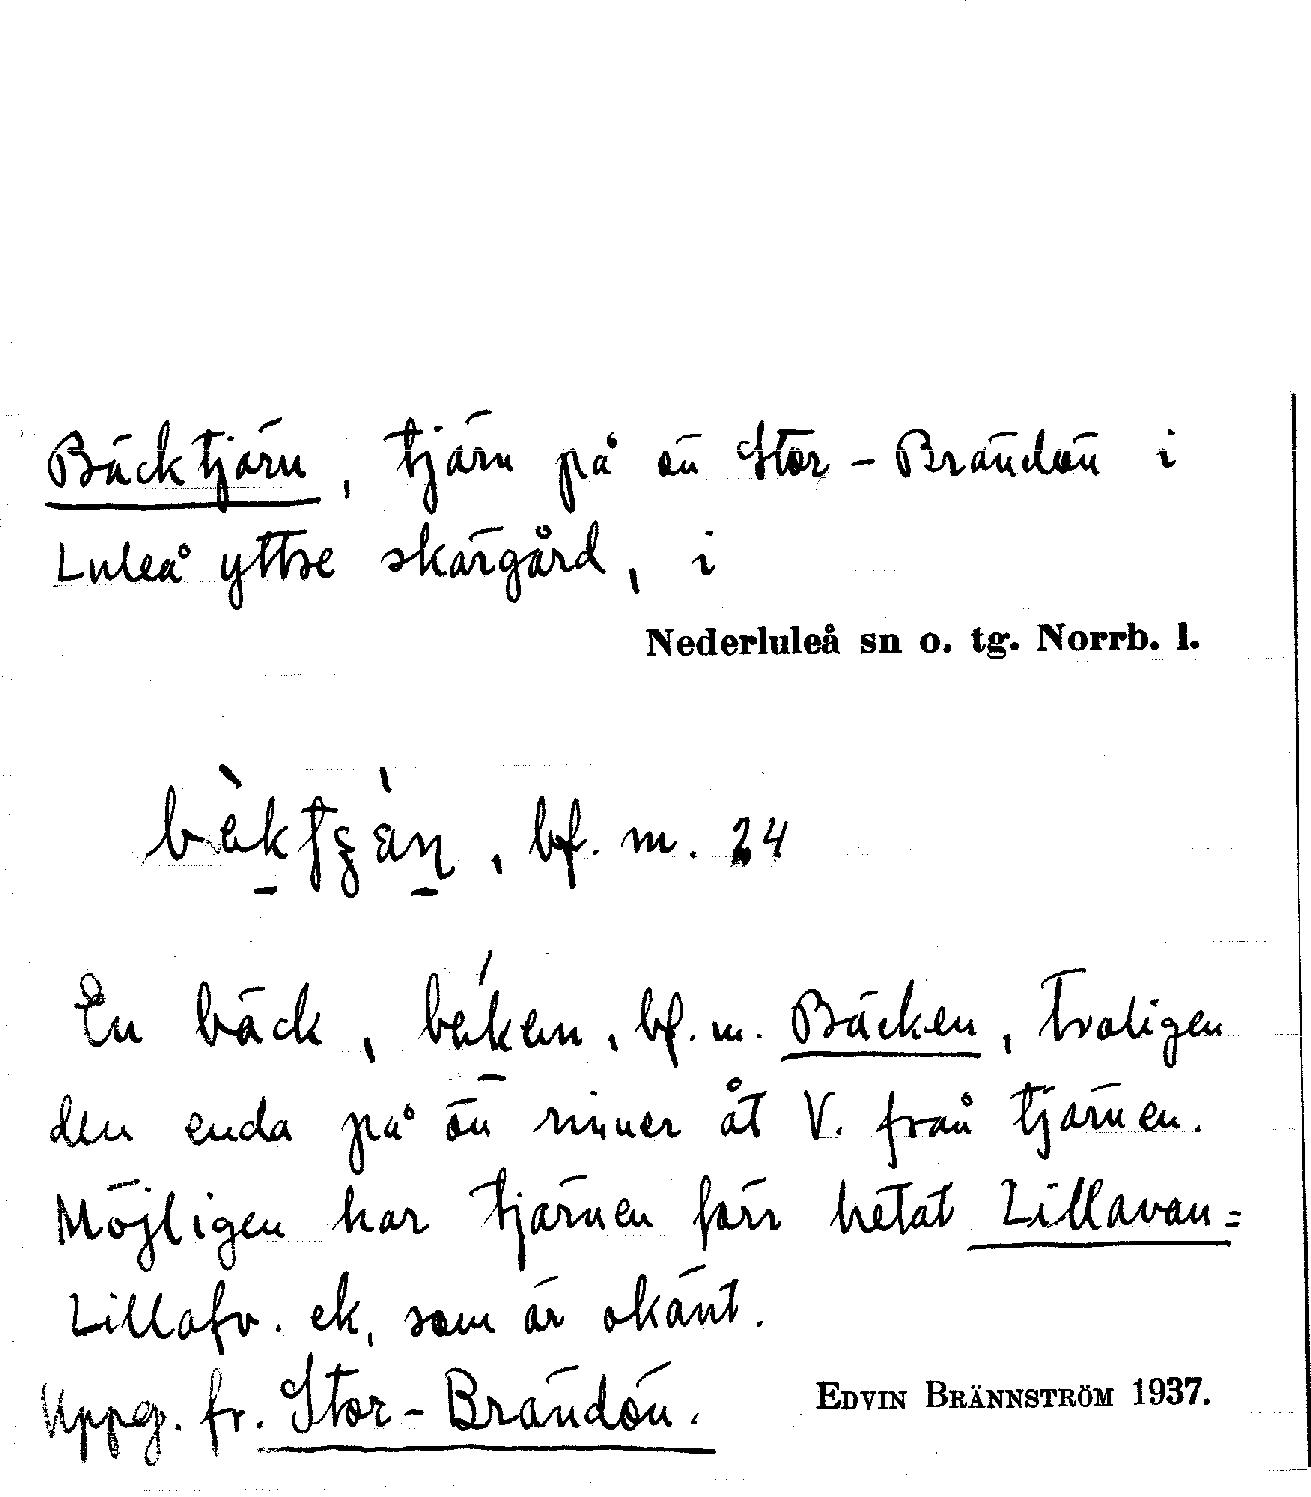 Bäcktjärn, tjärn på ön Stor-Brändön i
Luleå yttre skärgård, i
Nederluleå sn o. tg. Norrb. l.
bf. m. 24
En bäck, bf. m. Bäcken, troligen
den enda på ön rinner åt V. från tjärnen.
Möjligen har tjärnen förr hetat Lillavan =
Lillafv. ek, som är okänt.
Uppg. fr. Stor-Brändön.
EDVIN BRÄNNSTRÖM 1937.